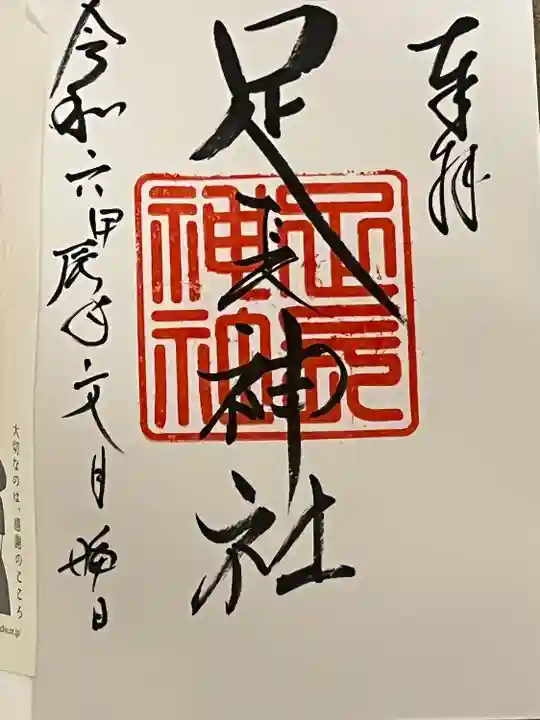 奉拝
足長神社
足長神社
令和六甲辰年文月晦日
大切なのは、感謝のこころ